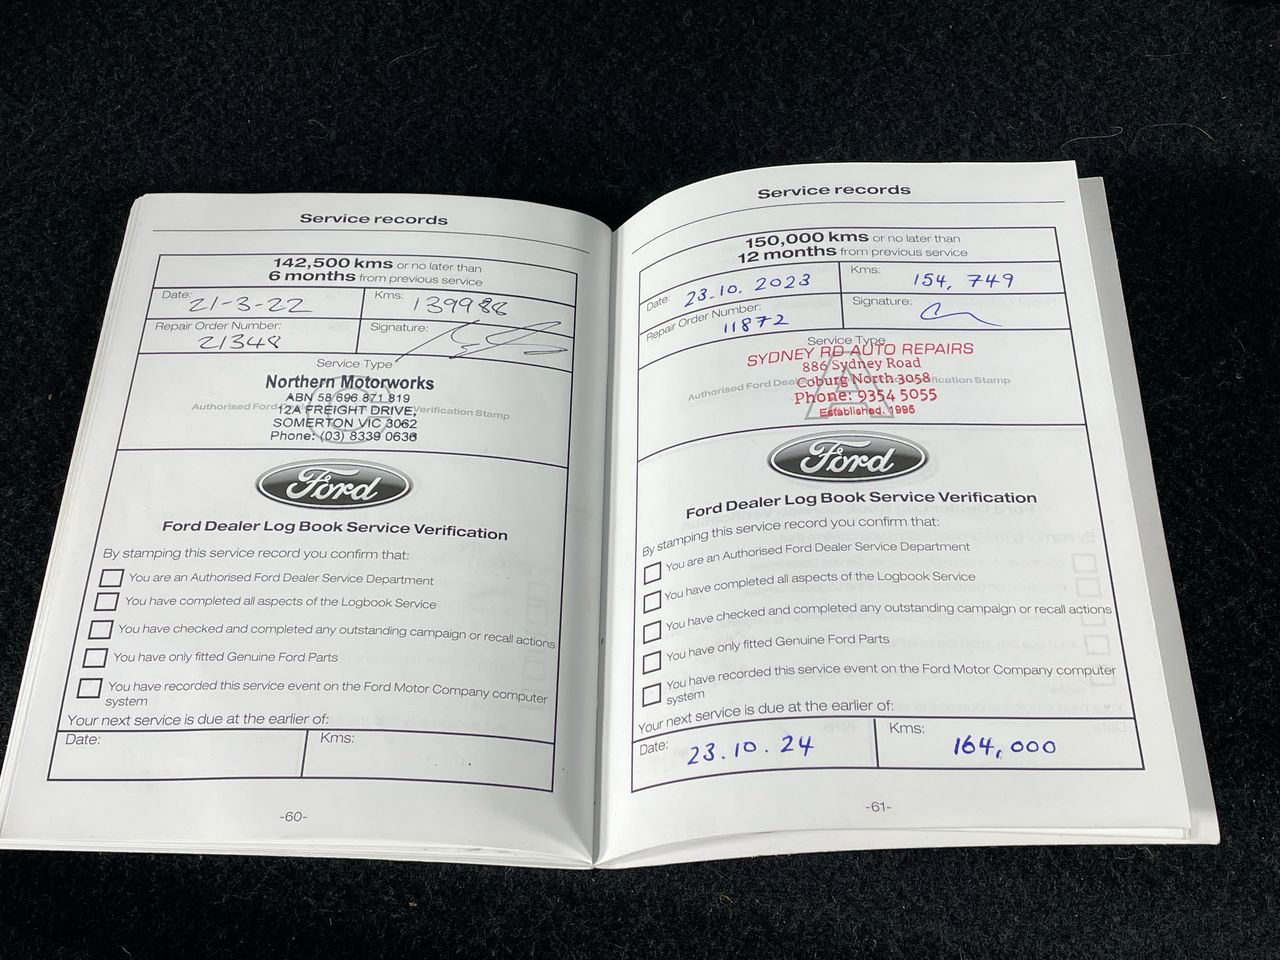 Service records
142,500 kms or no later than
6 months from previous service
Date: 21-3-22 Kms: 139988
Repair Order Number: 21348 Signature:
Service Type
C
Authorised Ford Dealer Verification Stamp
Northern Motorworks
ABN 58 696 871 819
12A FREIGHT DRIVE,
SOMERTON VIC 3062
Phone: (03) 8339 0636
Ford
Ford Dealer Log Book Service Verification
By stamping this service record you confirm that:
You are an Authorised Ford Dealer Service Department
You have completed all aspects of the Logbook Service
You have checked and completed any outstanding campaign or recall actions
You have only fitted Genuine Ford Parts
You have recorded this service event on the Ford Motor Company computer
system
Your next service is due at the earlier of:
Date: Kms:
-60-
Service records
150,000 kms or no later than
12 months from previous service
Date: 23.10.2023 Kms: 154,749
Repair Order Number: 11872 Signature:
Service Type
A
SYDNEY RD AUTO REPAIRS
886 Sydney Road
Coburg North 3058
Phone: 9354 5055
Established. 1996
Ford
Ford Dealer Log Book Service Verification
By stamping this service record you confirm that:
You are an Authorised Ford Dealer Service Department
You have completed all aspects of the Logbook Service
You have checked and completed any outstanding campaign or recall actions
You have only fitted Genuine Ford Parts
You have recorded this service event on the Ford Motor Company computer
system
Your next service is due at the earlier of:
Date: 23.10.24 Kms: 164,000
-61-